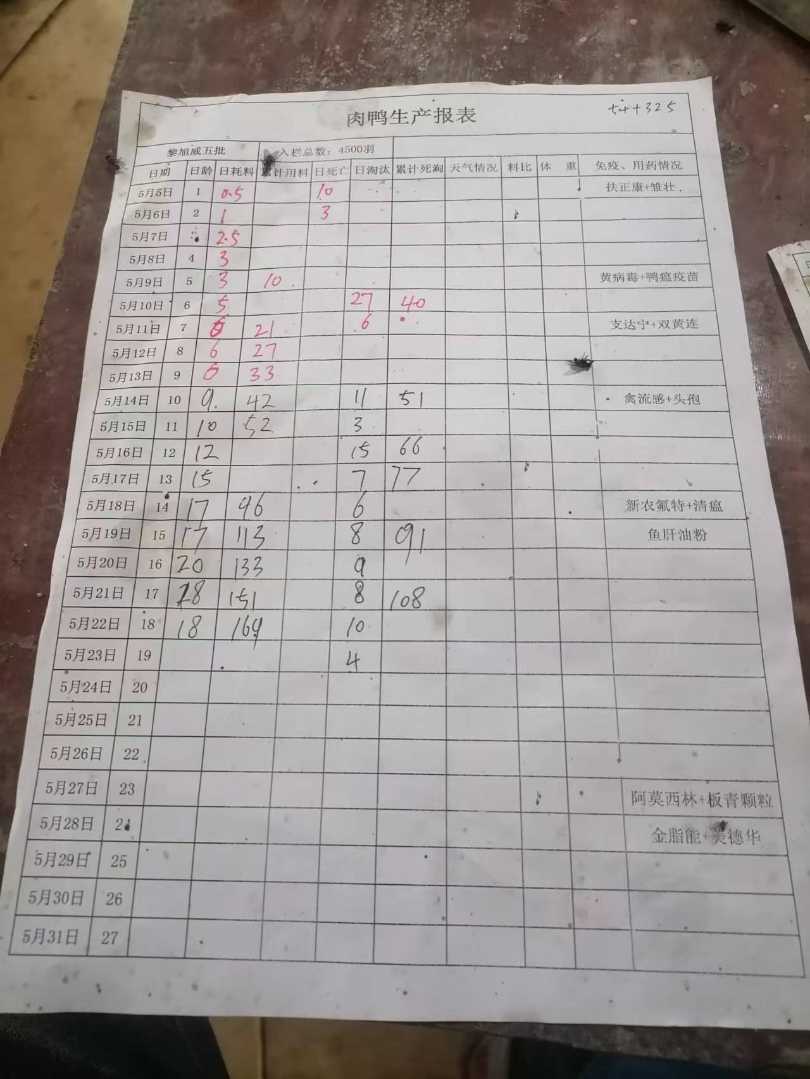 肉鸭生产报表
黎旭威五批 入栏总数：4500羽
日期 日龄 日耗料 累计用料 日死亡 日淘汰 累计死淘 天气情况 料比 体 重 免疫、用药情况
5月5日 1 0.5 10 扶正康+雏壮
5月6日 2 1 3
5月7日 2.5
5月8日 4 3
5月9日 5 3 10 黄病毒+鸭瘟疫苗
5月10日 6 5 27 40
5月11日 7 21 6 支达宁+双黄连
5月12日 8 6 27
5月13日 9 6 33
5月14日 10 9 42 11 51 禽流感+头孢
5月15日 11 10 52 3
5月16日 12 12 15 66
5月17日 13 15 7 77
5月18日 14 17 96 6 新农氟特+清瘟
5月19日 15 17 113 8 91 鱼肝油粉
5月20日 16 20 133 9
5月21日 17 18 151 8 108
5月22日 18 18 169 10
5月23日 19 4
5月24日 20
5月25日 21
5月26日 22
5月27日 23 阿莫西林+板青颗粒
5月28日 金脂能+美德华
5月29日 25
5月30日 26
5月31日 27